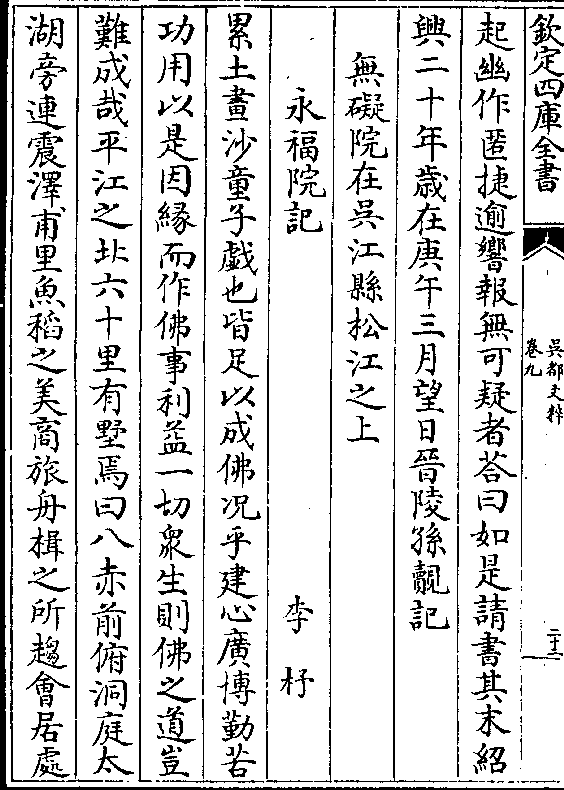 欽定四庫全書
吳都文粹
卷九
二十三
起幽作匿捷逾響報無可疑者荅曰如是請書其末紹
興二十年歳在庚午三月望日晉陵孫覿記
無礙院在吳江縣松江之上
永福院記
李杍
累土畫沙童子戯也皆足以成佛况乎建心廣博勤苦
功用以是因縁而作佛事利益一切衆生則佛之道豈
難成哉平江之北六十里有墅焉曰八赤前俯洞庭太
湖旁連震澤甫里魚稻之美商旅舟楫之所趨會居處